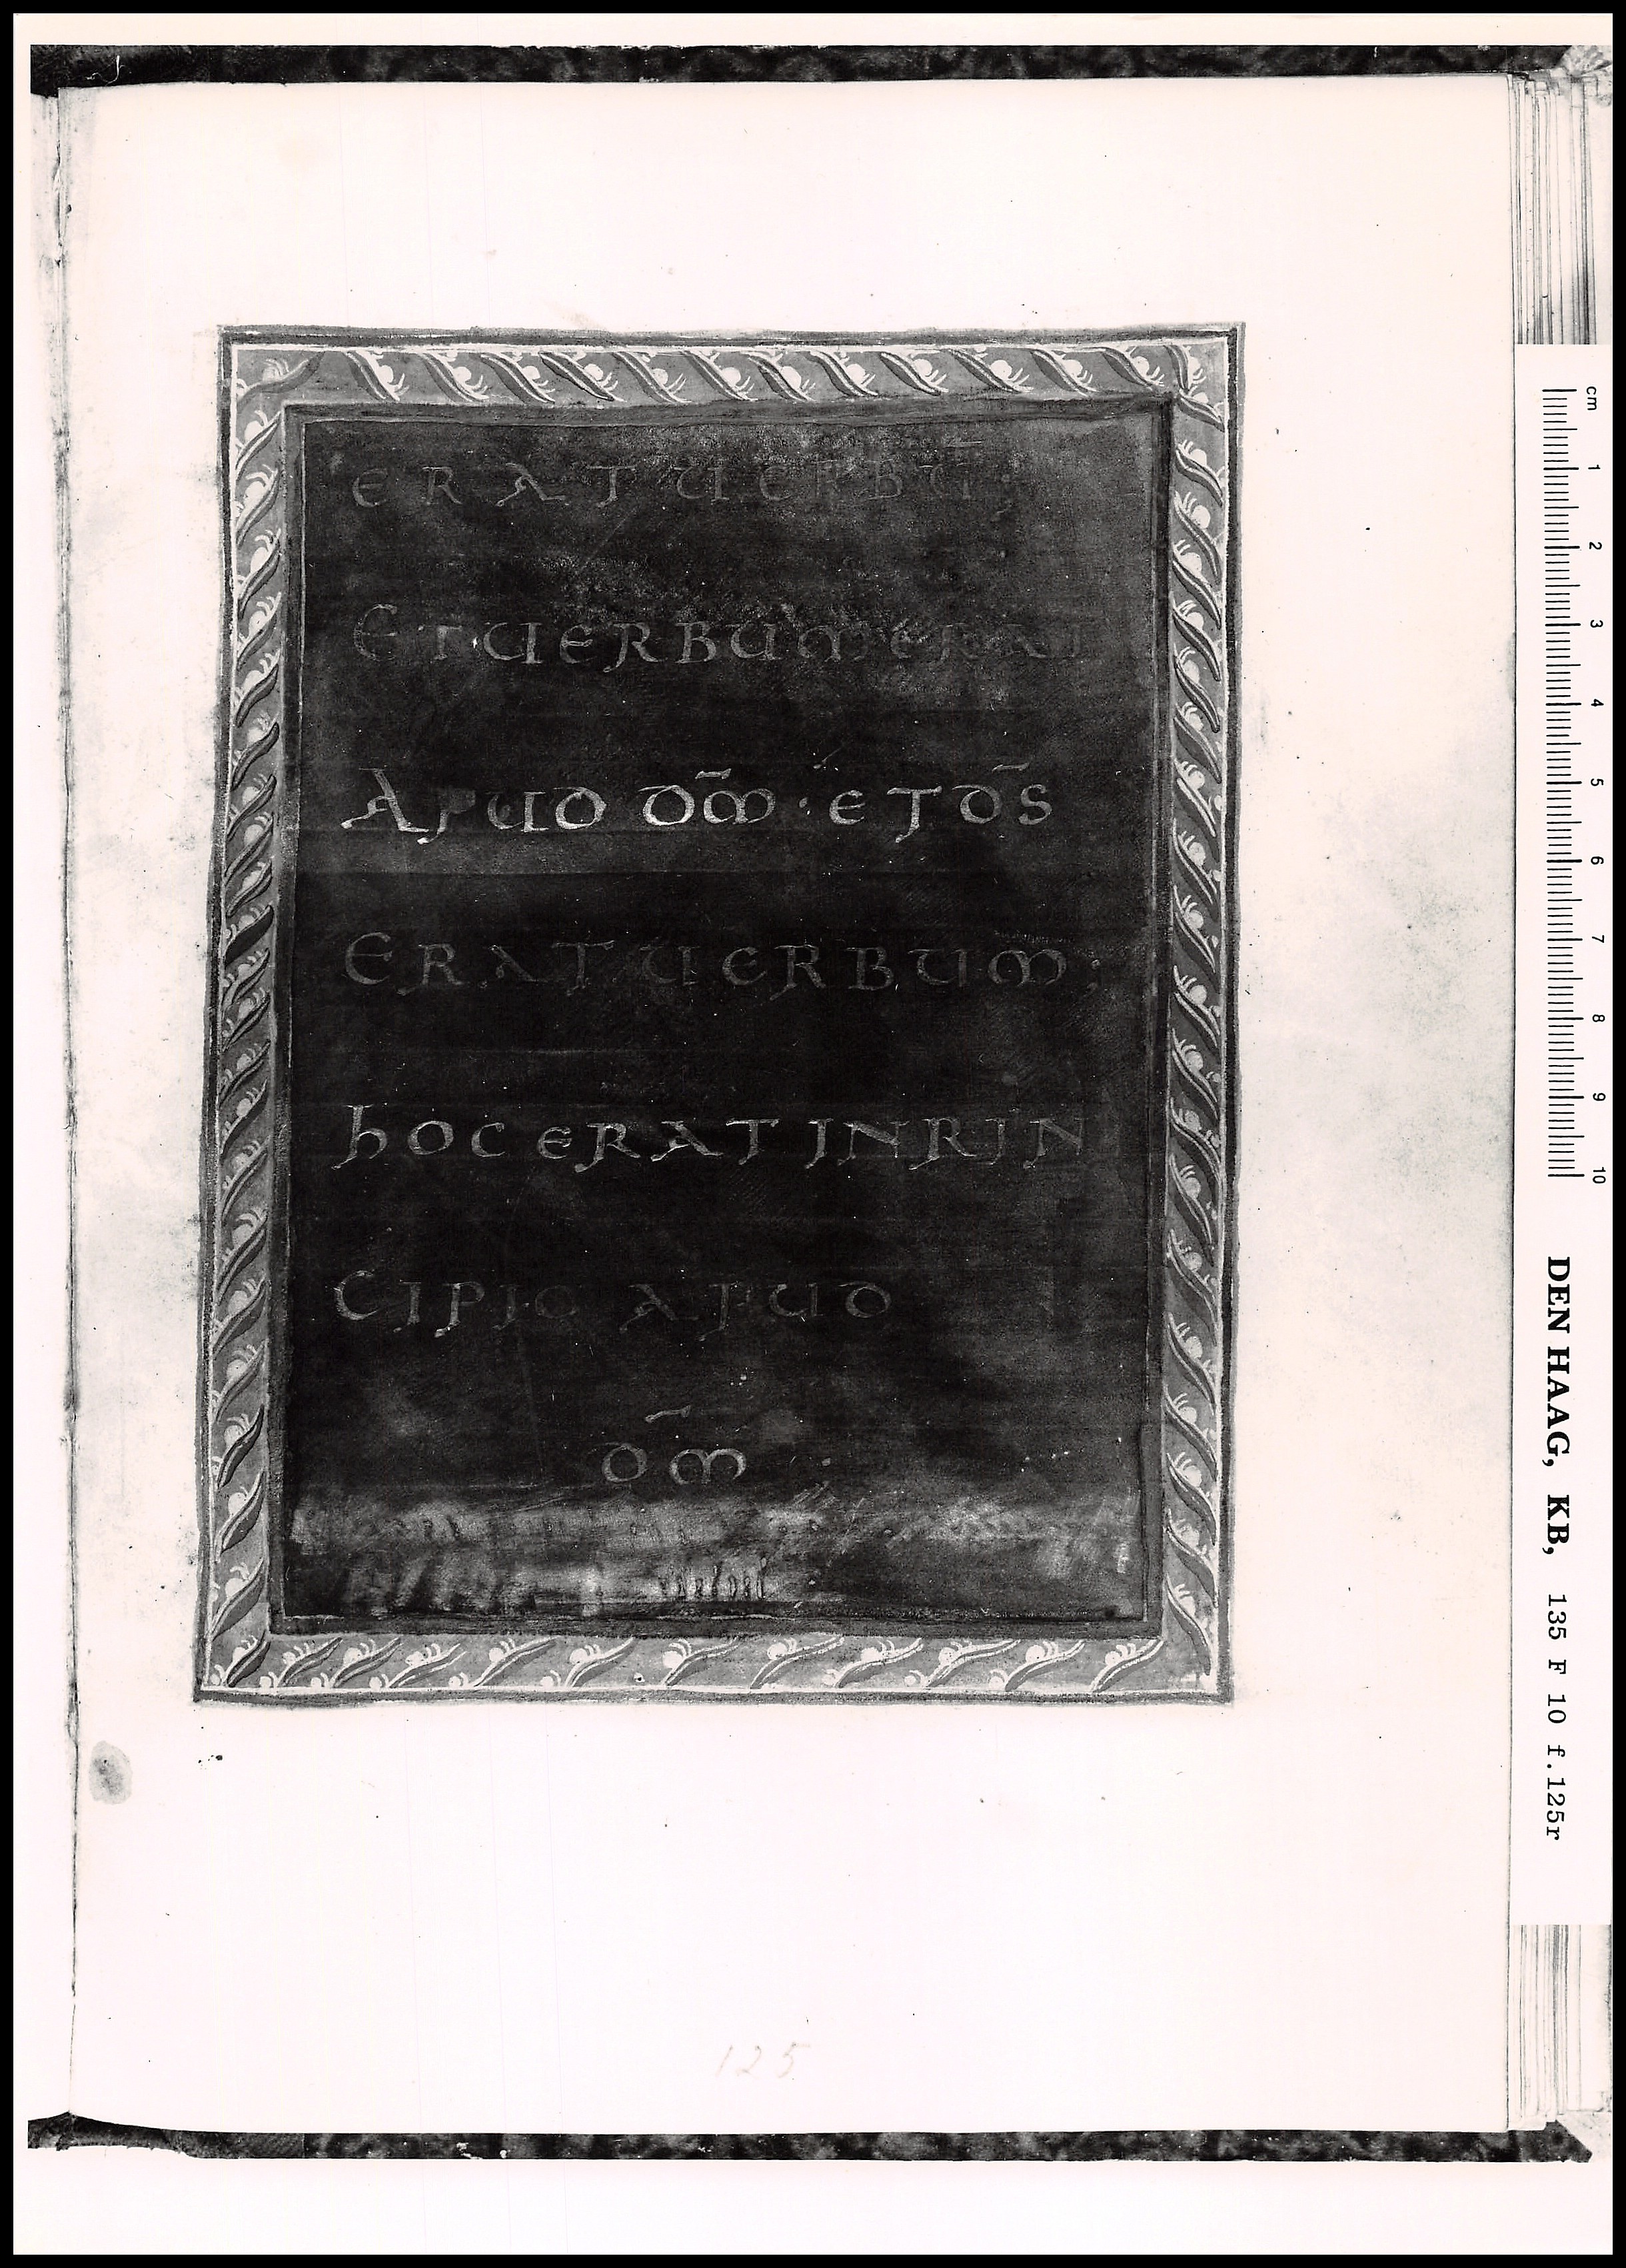 ERAT UERBŪ;
ET UERBUM ERAT
APUD DM̄ · ET DS̄
ERAT UERBUM;
hOC ERAT INRIN
CIPIO APUD
DM̄
125
cm 1 2 3 4 5 6 7 8 9 10
DEN HAAG, KB, 135 F 10 f.125r